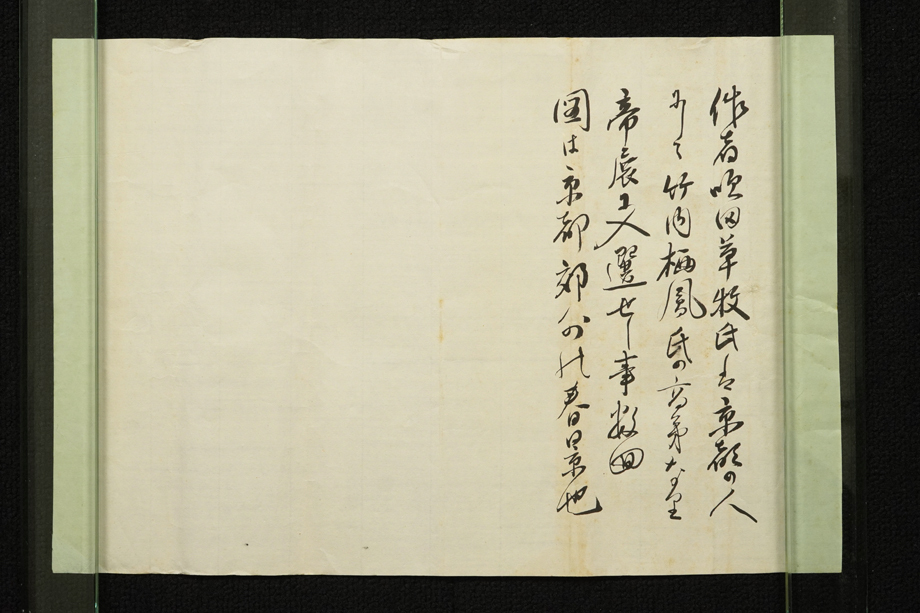 作者吹田草牧氏は京都の人
にして竹内栖鳳氏の高弟なり
帝展に入選せし事数回
図は京都郊外の春景也